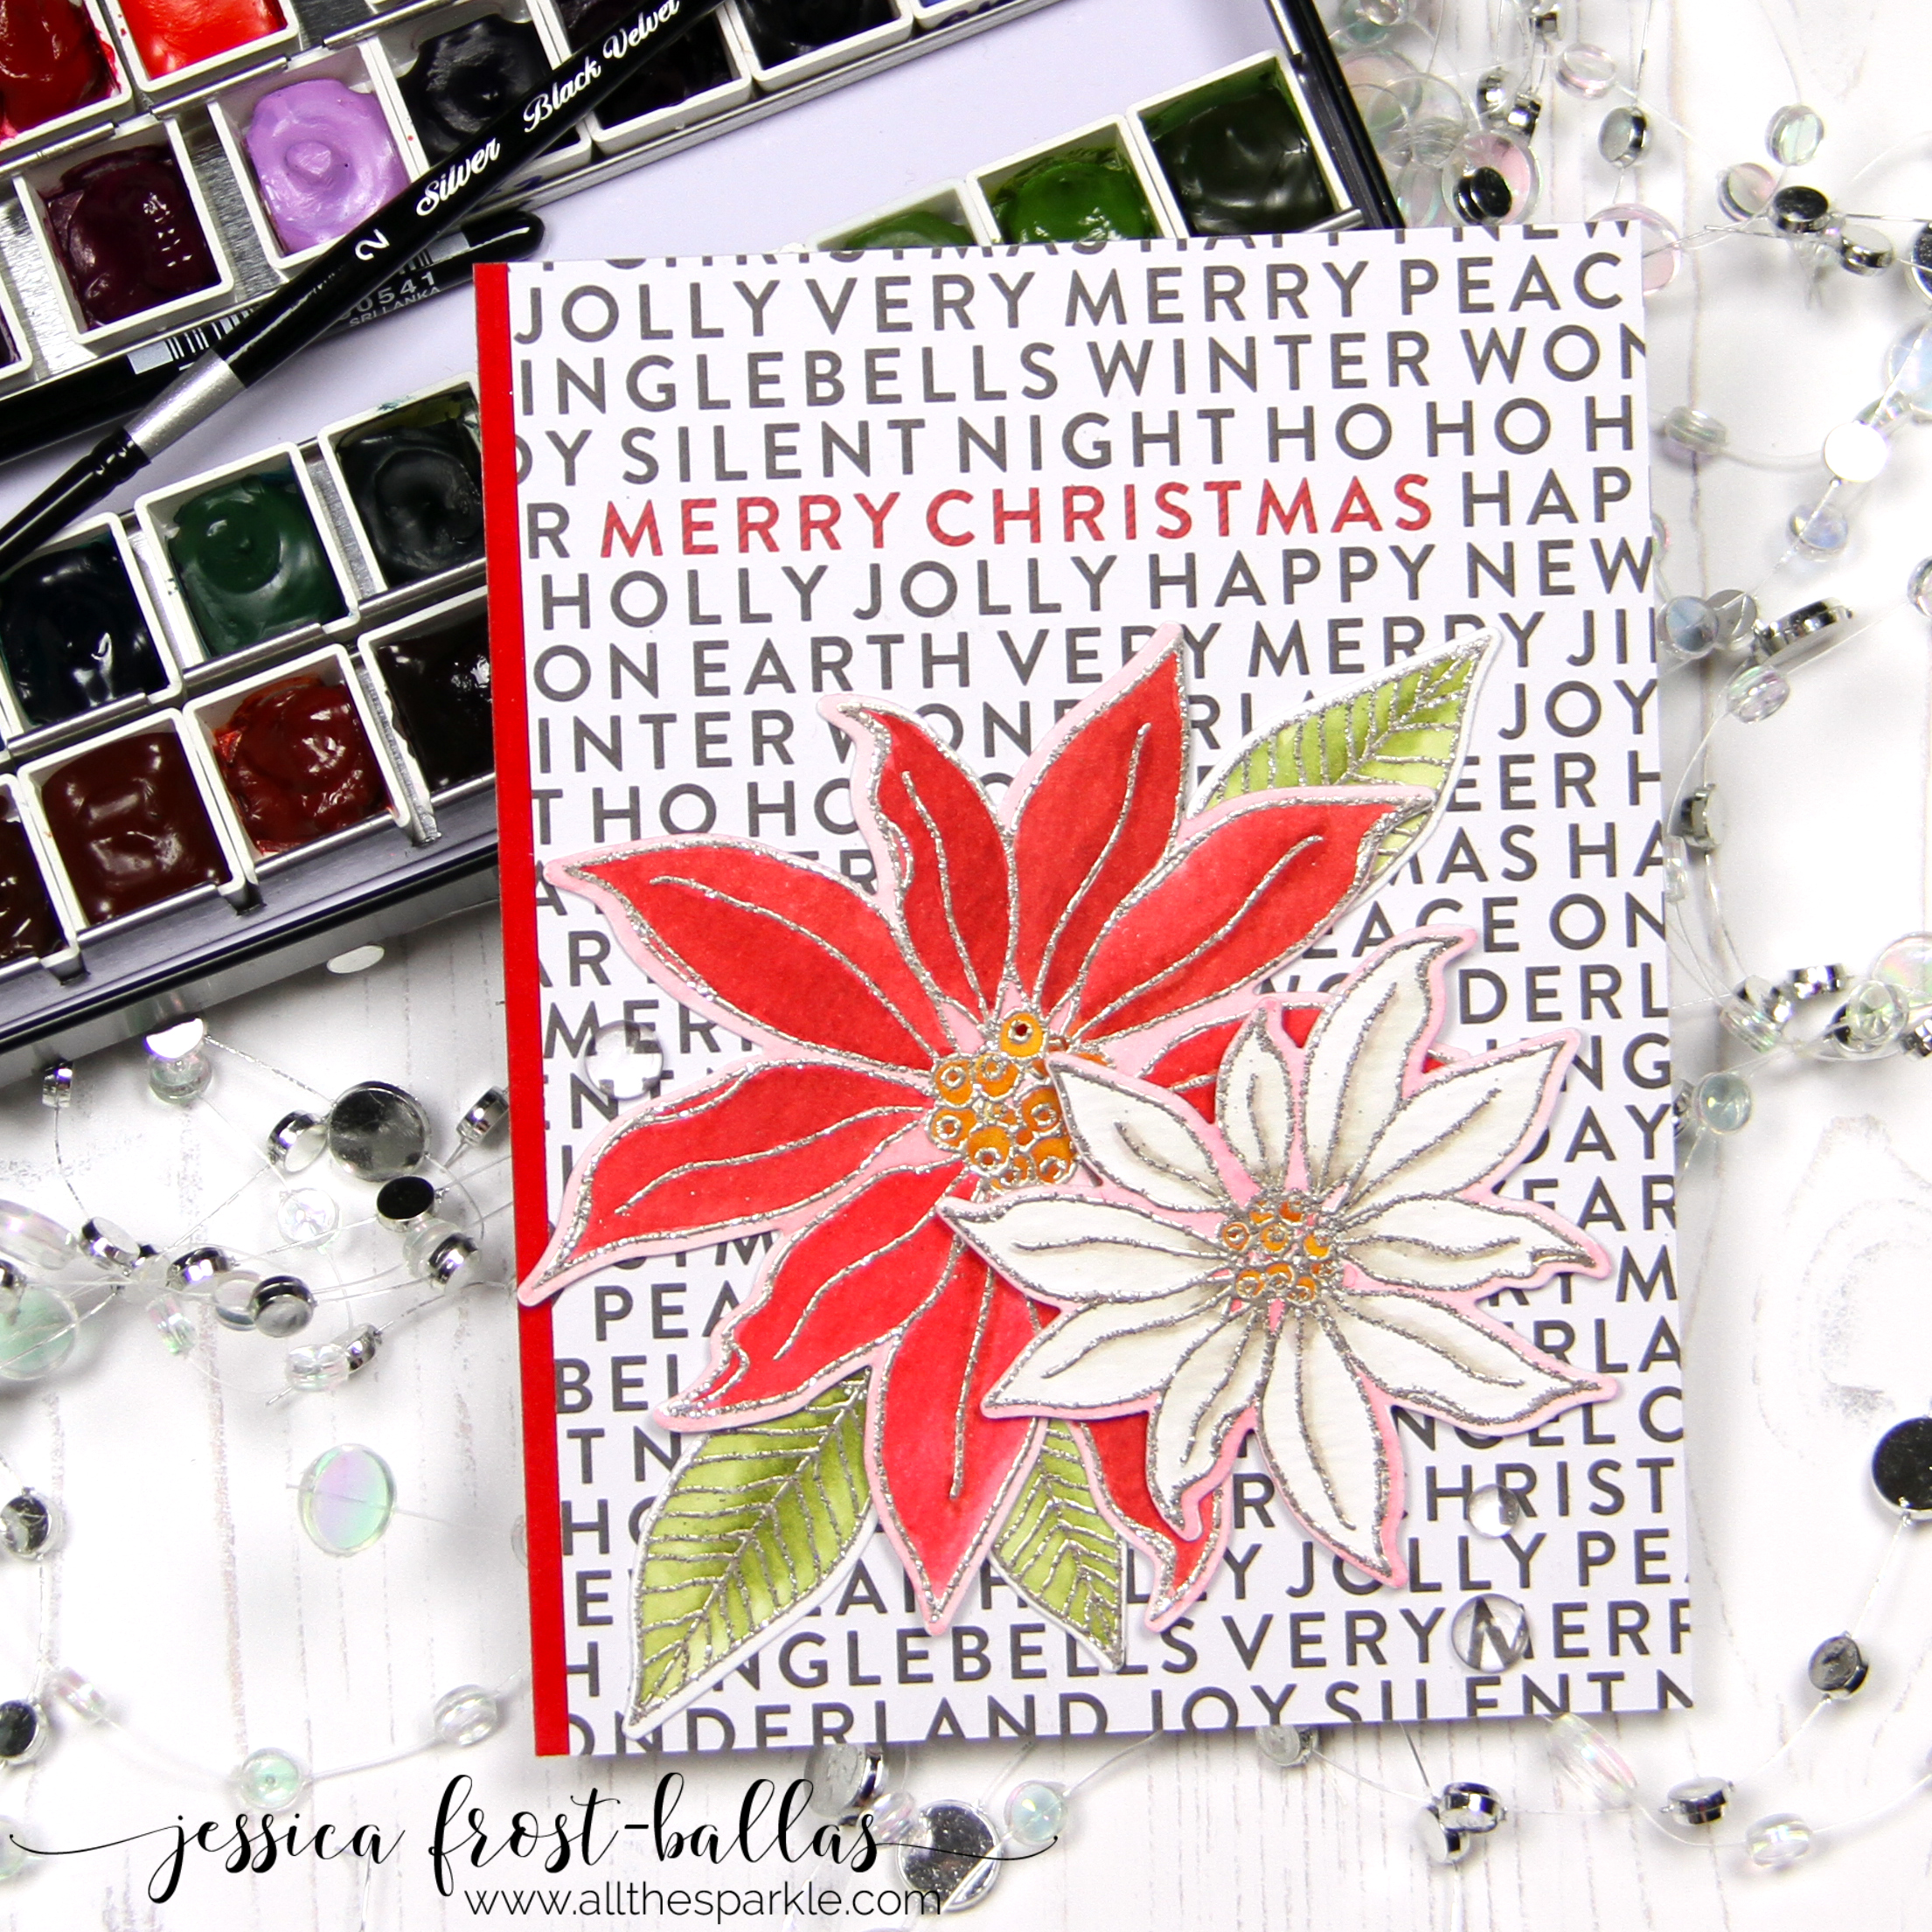 Silver Black Velvet
2
0541
SRI LANKA
CHRISTMAS HAPPY NEW
JOLLY VERY MERRY PEAC
INGLEBELLS WINTER WON
OY SILENT NIGHT HO HO H
R MERRY CHRISTMAS HAP
HOLLY JOLLY HAPPY NEW
ON EARTH VERY MERRY JI
INTER WONDERLA JOY
T HO HO EER H
MAS HA
AR EACE ON
MER ONDERL
ENT ING
DAY
EAR
PEA RY M
BEL ERLA
T N NGEL C
HO R CHRIST
E EAR HOLLY JOLLY PEA
H INGLEBELLS VERY MERR
ONDERLAND JOY SILENT N
jessica frost-ballas
www.allthesparkle.com